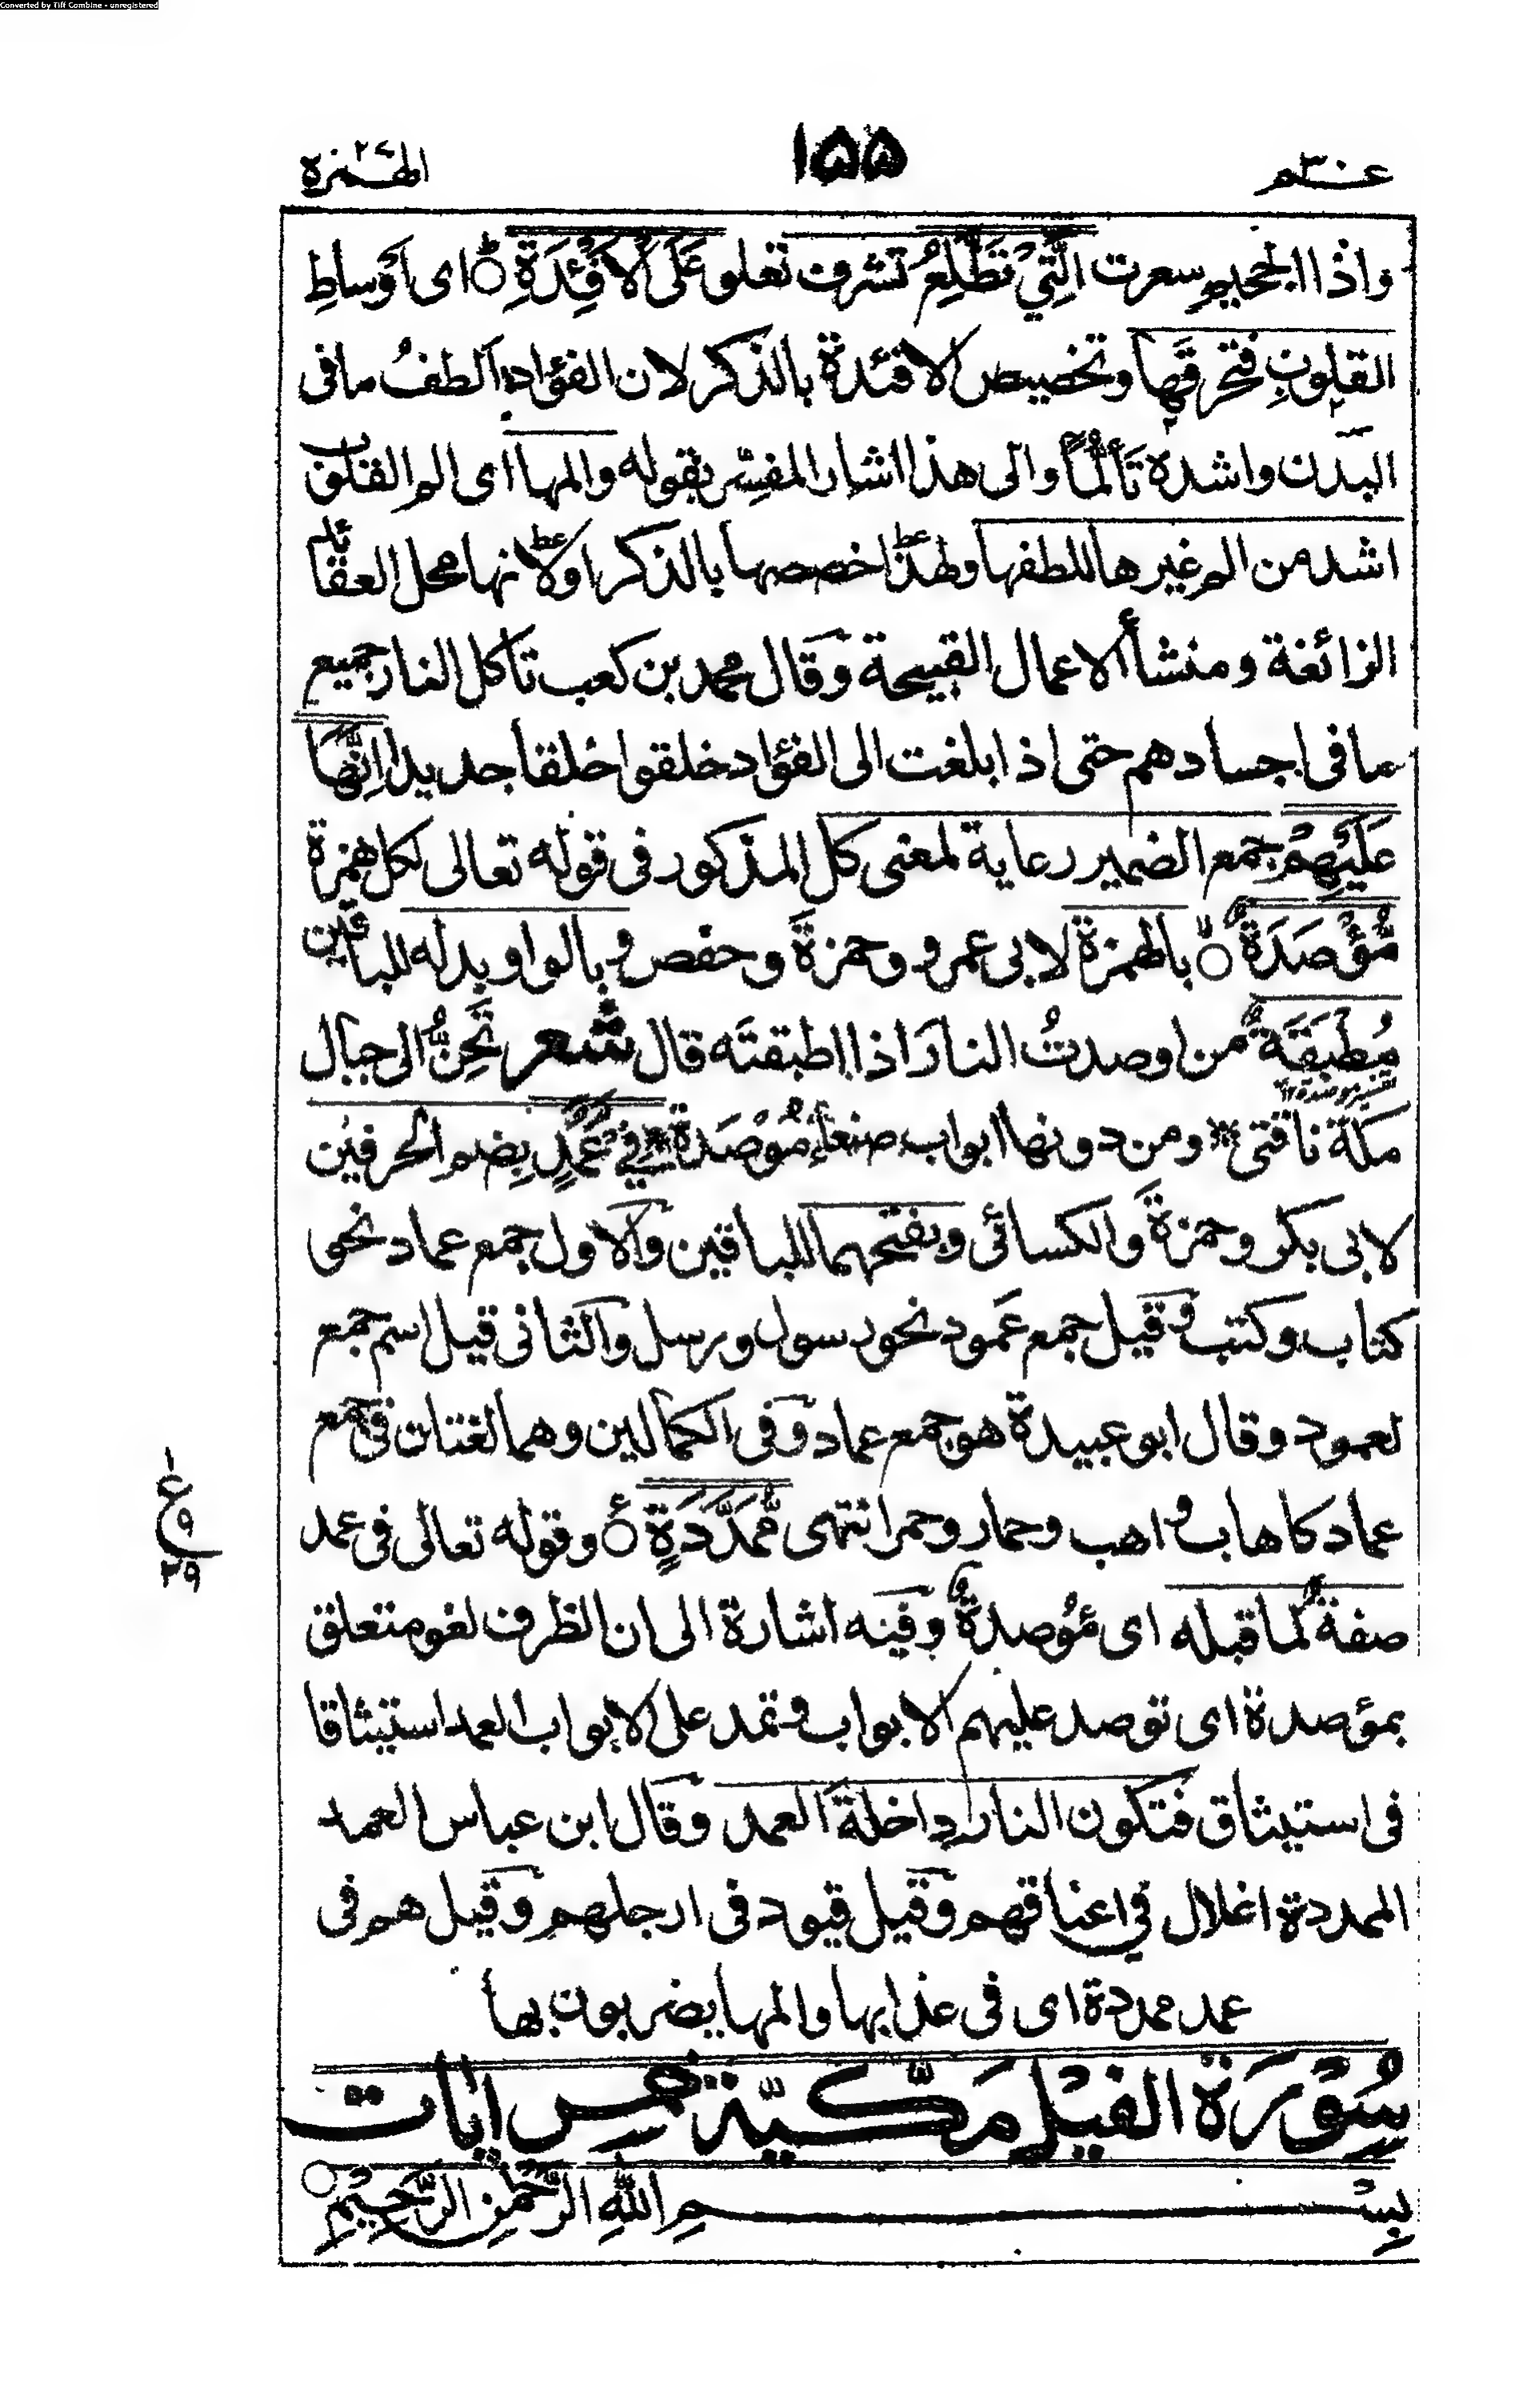 Converted by Tiff Combine - unregistered
عـ۳۰ـم ۱۵۵ الهمزة
واذا الجحيم سعرت الَّتِيْ تَطَّلِعُ تشرف تعلو عَلَى الْاَفْـِٕدَةِ ای اَوْساطِ
القلوبِ فتحرقَها وتخصيص الافئدة بالذكر لان الفؤاد اَلطفُ مافی
البدن واشده تَأَلُّمًا والى هذا اشار المفسِّر بقوله والمها ای الم القلوب
اشد من الم غيرها للطفها ولهذا خصصها بالذكر او لانها محل العقائد
الزائغة ومنشأ الاعمال القبيحة وقال محمد بن كعب تأكل النار جميع
مافی اجسادهم حتى اذا بلغت الى الفؤاد خلقوا خلقا جديدا اِنَّهَا
عَلَيْهِمْ جمع الضمير رعاية لمعنى كل المذكور فی قوله تعالى لكل همزة
مُّؤْصَدَةٌ بالهمزة لابی عمرو وحمزة وحفص وبالواو بدله للباقين
مُطْبَقَةٌ من اوصدتُ النارَ اذا اطبقتَه قال شعر تَحِنُّ الى جبال
مكة ناقتی ومن دونها ابواب صنعاء مُوْصَدَة فِیْ عَمَدٍ بضم الحرفين
لابی بكر وحمزة والكسائی وبفتحهما للباقين والاول جمع عماد نحو
كتاب وكتب وقيل جمع عَمود نحو رسول ورسل والثانی قيل اسم جمع
لعمود وقال ابو عبيدة هو جمع عماد وفی الكمالين وهما لغتان فی جمع
عماد كاهاب واهب وحمار وحمر انتهى مُّمَدَّدَةٍ وقوله تعالى فی عمد
صفةٌ لما قبله ای مؤصدةٌ وفيه اشارة الى ان الظرف لغو متعلق
بمؤصدة ای توصد عليهم الابواب وتمد على الابواب العمد استيثاقا
فی استيثاق فتكون النار داخلة العمد وقال ابن عباس العمد
الممددة اغلال فی اعناقهم وقيل قيود فی ارجلهم وقيل هم فی
عمد ممددة ای فی عذابها والمها يضربون بها
ع
۹
۲۹
سُوْرَةُ الفِيْلِ مَكِّيَّة خمس اٰيات
بِسْمِ اللّٰهِ الرَّحْمٰنِ الرَّحِيْمِ